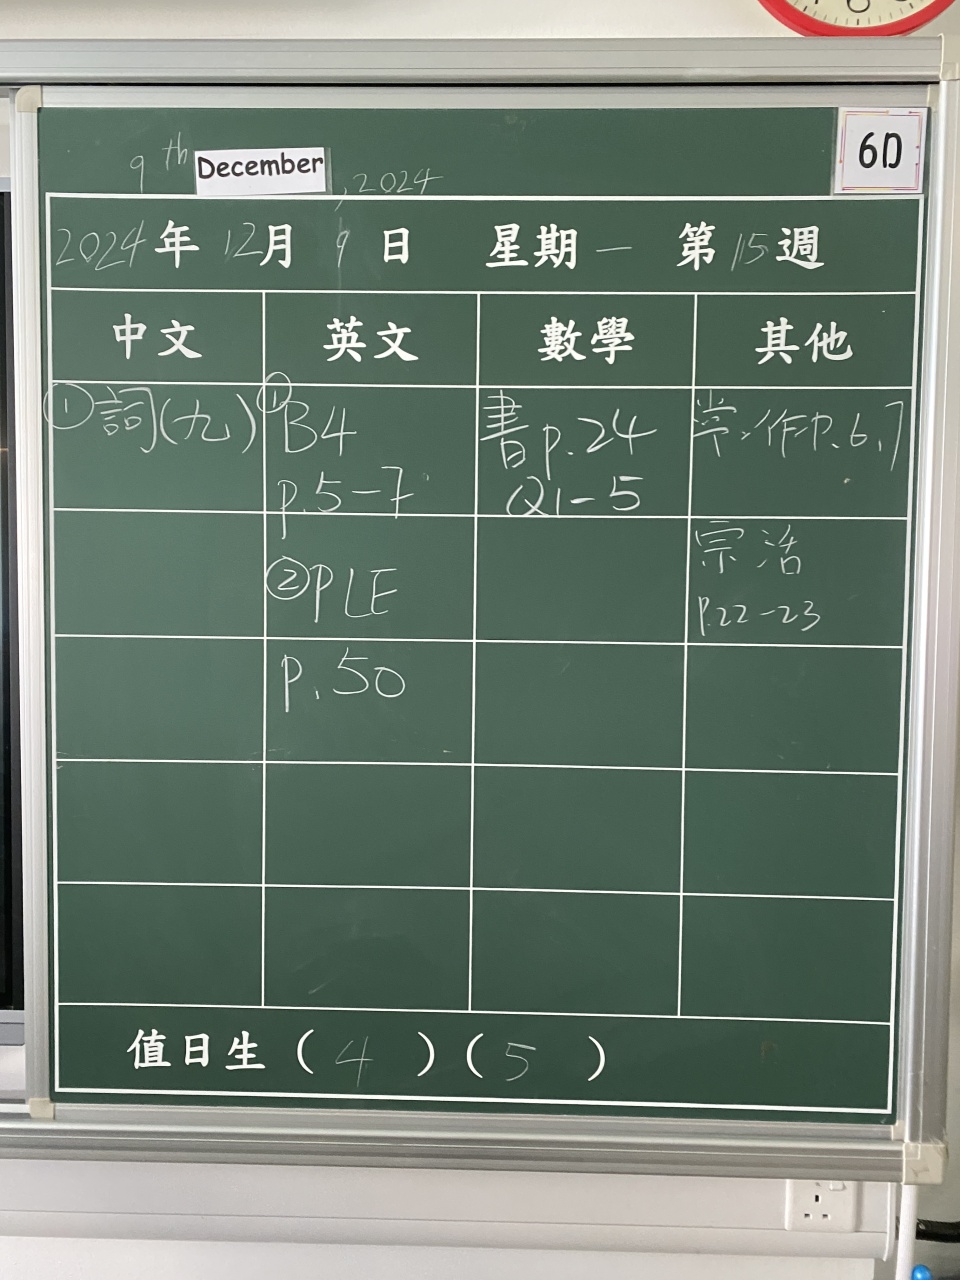 6D
9th December, 2024
2024年 12月 9日 星期一 第15週
中文 英文 數學 其他
①詞(九) ①B4 書p.24 常作p.6,7
p.5-7 Q1-5
②PLE 宗活
p.22-23
p.50
值日生(4)(5)